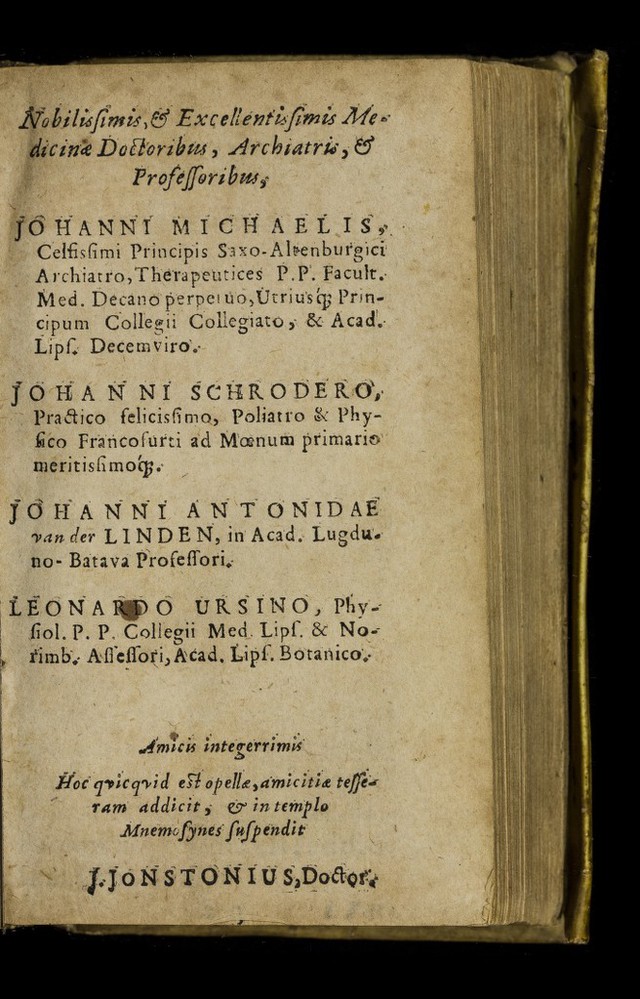 Nobilisſimis, & Excellentisſimis Me-
dicinæ Doctoribus, Archiatris, &
Profeſſoribus,
JOHANNI MICHAELIS,
Celſisſimi Principis Saxo-Altenburgici
Archiatro, Therapeutices P.P. Facult.
Med. Decano perpetuo, Utriusq; Prin-
cipum Collegii Collegiato, & Acad.
Lipſ. Decemviro.
JOHANNI SCHRODERO,
Practico feliciſſimo, Poliatro & Phy-
ſico Francofurti ad Mœnum primario
meritisſimoq;.
JOHANNI ANTONIDAE
van der LINDEN, in Acad. Lugdu-
no-Batava Profeſſori.
LEONARDO URSINO, Phy-
ſiol. P. P. Collegii Med. Lipſ. & No-
rimb. Aſſeſſori, Acad. Lipſ. Botanico.
Amicis integerrimis
Hoc qvicqvid est opellæ, amicitiæ teſſe-
ram addicit, & in templo
Mnemoſynes ſuſpendit
J. JONSTONIUS, Doctor.